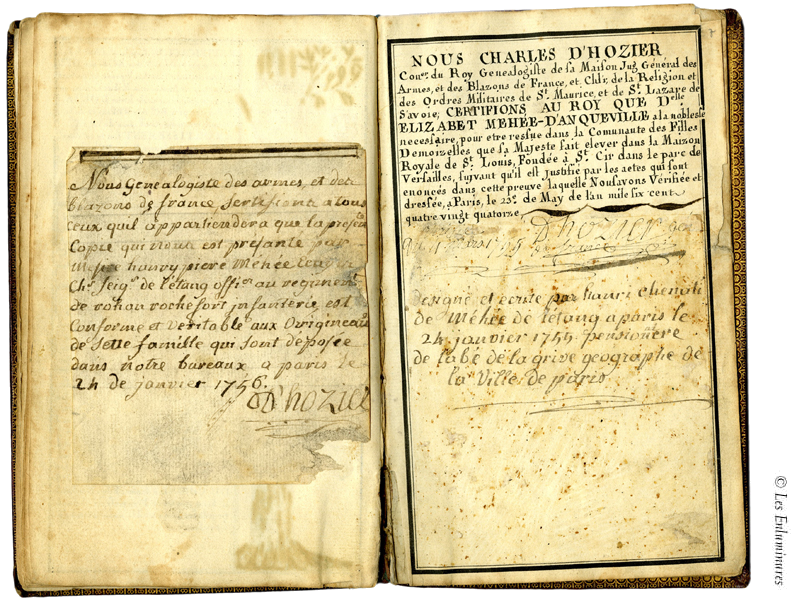 Nous Genealogiste des armes, et des
blazons de france Sertifions a tous
ceux quil appartiendera que la presente
Copie qui nous est présante par
Messire hanry piere Méhée
Ch.r seig.r de létang offi.er au regiment
de rohan rochefort jnfanterie, est
Conforme et veritable aux Origineaux
de Sette famille qui sont deposée
dans notre bureaux a paris le
24 de janvier 1756.
D'hozier
NOUS CHARLES D'HOZIER
Con.er du Roy Genealogiste de sa Maison Jug General des
Armes, et des Blazons de France, et Ch.lr de la Religion et
des Ordres Militaires de S.t Maurice, et de S.t Lazare de
Savoie; CERTIFIONS AU ROY QUE D.elle
ELIZABET MEHÉE-D'ANQUEVILLE a la noblesse
necessaire, pour etre resue dans la Comunaute des Filles
Demoizelles que sa Majeste fait elever dans la Maizon
Royale de S.t Louis, Fondée à S.t Cir dans le parc de
Versailles, suivant qu'il est Justifié par les actes qui sont
enoncés dans cette preuve laquelle Nous avons Vérifiée et
dressée, a Paris, le 25.e de May de l'an mile six cent
quatre vingt quatorze
D'hozier
designé et ecrite par hanri
de Méhée de létang a paris le
24 janvier 1755 pensionere
de l'abé de la grive geographe de
la Ville de paris
© Les Enluminures